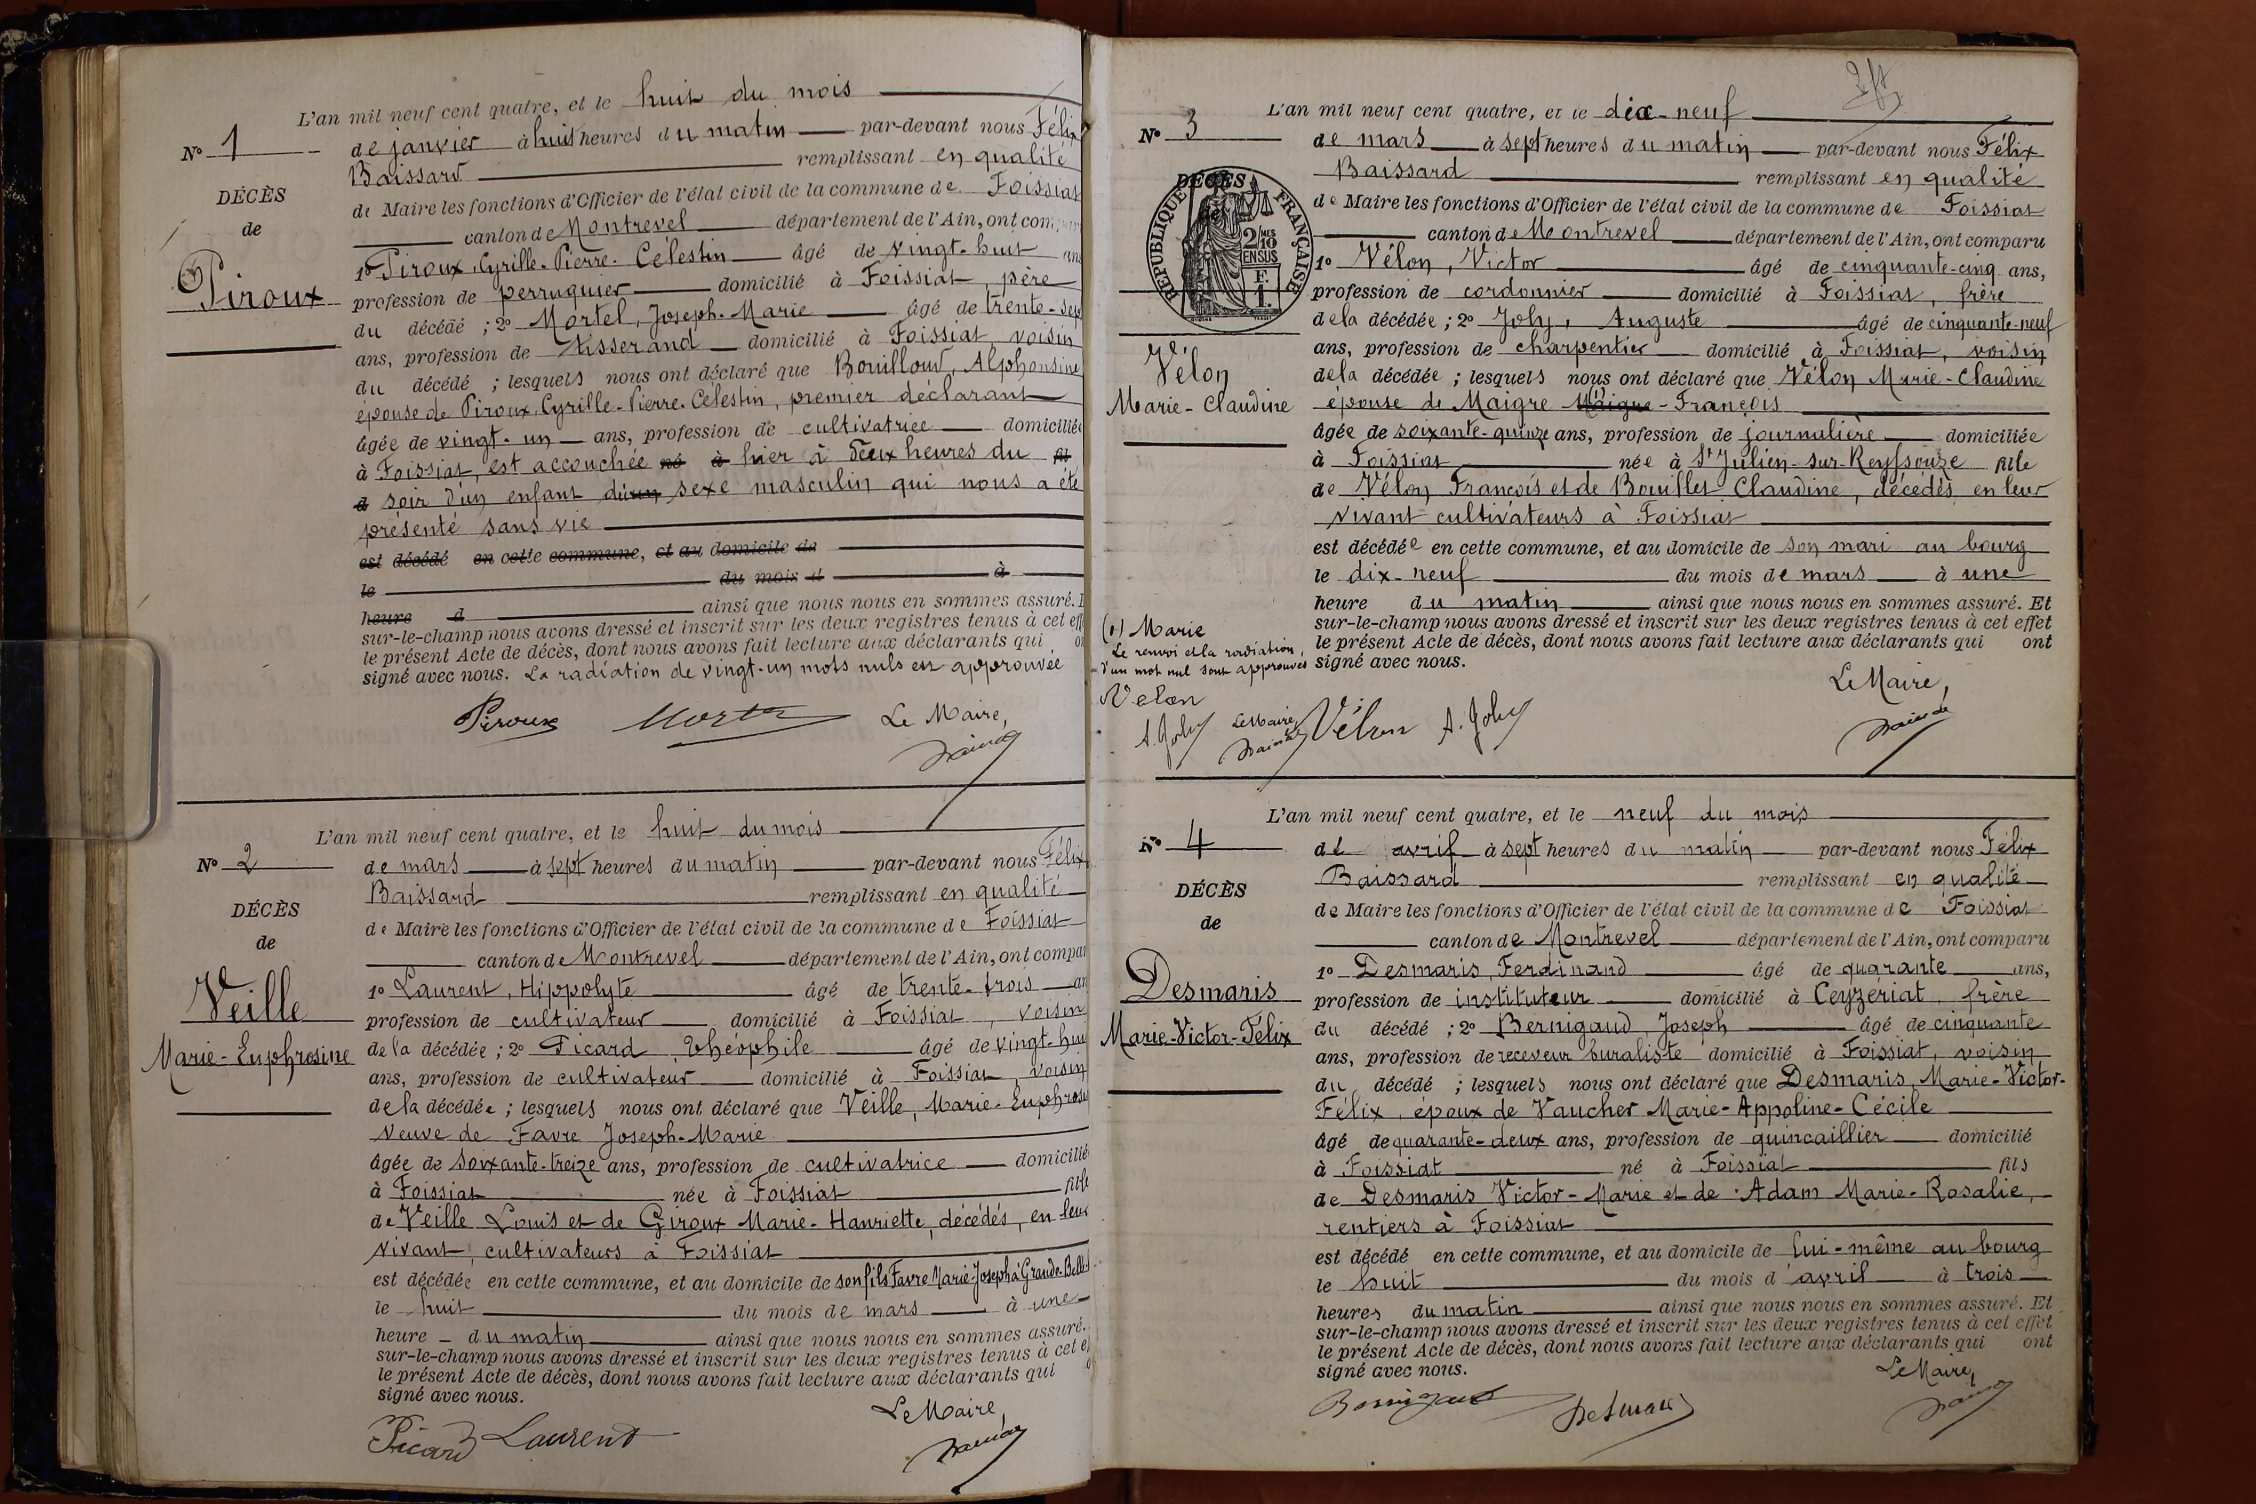 L'an mil neuf cent quatre, et le huit du mois
N° 1
de janvier à huit heures du matin par-devant nous Félix
Baissard remplissant en qualité
DÉCÈS
de Maire les fonctions d'Officier de l'état civil de la commune de Foissiat
de
canton de Montrevel département de l'Ain, ont compar
1° Piroux, Cyrille-Pierre-Célestin âgé de vingt-huit ans
Piroux
profession de perruquier domicilié à Foissiat, père
du décédé ; 2° Mortel, Joseph-Marie âgé de trente-sep
ans, profession de tisserand domicilié à Foissiat, voisin
du décédé ; lesquels nous ont déclaré que Bouilloud, Alphonsine
épouse de Piroux, Cyrille-Pierre-Célestin, premier déclarant
âgée de vingt-un ans, profession de cultivatrice domiciliée
à Foissiat, est accouchée né à hier à deux heures du fil
d soir d'un enfant du sexe masculin qui nous a été
présenté sans vie
est décédé en cette commune, et au domicile de
le du mois d à
heure d ainsi que nous nous en sommes assuré.
sur-le-champ nous avons dressé et inscrit sur les deux registres tenus à cet eff
le présent Acte de décès, dont nous avons fait lecture aux déclarants qui on
signé avec nous. La radiation de vingt-un mots nuls est approuvée
Piroux Mortel Le Maire,
Baissard
L'an mil neuf cent quatre, et le huit du mois
N° 2
de mars à sept heures du matin par-devant nous Félix
Baissard remplissant en qualité
DÉCÈS
de Maire les fonctions d'Officier de l'état civil de la commune de Foissiat
de
canton de Montrevel département de l'Ain, ont compar
Veille
1° Laurent, Hippolyte âgé de trente-trois an
profession de cultivateur domicilié à Foissiat, voisin
Marie-Euphrosine
de la décédée ; 2° Picard, Théophile âgé de vingt-hui
ans, profession de cultivateur domicilié à Foissiat, voisin
de la décédée ; lesquels nous ont déclaré que Veille, Marie-Euphrosi
veuve de Favre Joseph-Marie
âgée de soixante-treize ans, profession de cultivatrice domicilié
à Foissiat née à Foissiat fille
de Veille Louis et de Giroux Marie-Henriette, décédés, en leur
vivant, cultivateurs à Foissiat
est décédée en cette commune, et au domicile de son fils Favre Marie-Joseph à Grande-Bell
le huit du mois de mars à une
heure du matin ainsi que nous nous en sommes assuré.
sur-le-champ nous avons dressé et inscrit sur les deux registres tenus à cet e
le présent Acte de décès, dont nous avons fait lecture aux déclarants qui o
signé avec nous.
Le Maire,
Picard Laurent Baissard
L'an mil neuf cent quatre, et le dix-neuf
N° 3
de mars à sept heures du matin par-devant nous Félix
Baissard remplissant en qualité
DÉCÈS
RÉPUBLIQUE FRANÇAISE
2/10 MES EN SUS
F. 1.
de Maire les fonctions d'Officier de l'état civil de la commune de Foissiat
canton de Montrevel département de l'Ain, ont comparu
1° Vélon, Victor âgé de cinquante-cinq ans,
profession de cordonnier domicilié à Foissiat, frère
de la décédée ; 2° Joly, Auguste âgé de cinquante-neuf
ans, profession de charpentier domicilié à Foissiat, voisin
Vélon
de la décédée ; lesquels nous ont déclaré que Vélon Marie-Claudine
Marie-Claudine
épouse de Maigre Maigre-François
âgée de soixante-quinze ans, profession de journalière domiciliée
à Foissiat née à St Julien-sur-Reyssouze fille
de Vélon François et de Bouillet Claudine, décédés en leur
vivant cultivateurs à Foissiat
est décédée en cette commune, et au domicile de son mari au bourg
le dix-neuf du mois de mars à une
heure du matin ainsi que nous nous en sommes assuré. Et
sur-le-champ nous avons dressé et inscrit sur les deux registres tenus à cet effet
le présent Acte de décès, dont nous avons fait lecture aux déclarants qui ont
signé avec nous.
(1) Marie
Le renvoi et la radiation
d'un mot nul sont approuvés
Velon
A. Joly Le Maire, Baissard
Vélon A. Joly
Le Maire,
Baissard
L'an mil neuf cent quatre, et le neuf du mois
N° 4
de avril à sept heures du matin par-devant nous Félix
Baissard remplissant en qualité
DÉCÈS
de Maire les fonctions d'Officier de l'état civil de la commune de Foissiat
de
canton de Montrevel département de l'Ain, ont comparu
1° Desmaris, Ferdinand âgé de quarante ans,
Desmaris
profession de instituteur domicilié à Ceyzeriat, frère
Marie-Victor-Félix
du décédé ; 2° Bernigaud, Joseph âgé de cinquante
ans, profession de receveur buraliste domicilié à Foissiat, voisin
du décédé ; lesquels nous ont déclaré que Desmaris, Marie-Victor-
Félix, époux de Vaucher Marie-Appoline-Cécile
âgé de quarante-deux ans, profession de quincaillier domicilié
à Foissiat né à Foissiat fils
de Desmaris Victor-Marie et de Adam Marie-Rosalie,
rentiers à Foissiat
est décédé en cette commune, et au domicile de lui-même au bourg
le huit du mois d'avril à trois
heures du matin ainsi que nous nous en sommes assuré. Et
sur-le-champ nous avons dressé et inscrit sur les deux registres tenus à cet effet
le présent Acte de décès, dont nous avons fait lecture aux déclarants qui ont
signé avec nous.
Le Maire,
Bernigaud Desmaris Baissard